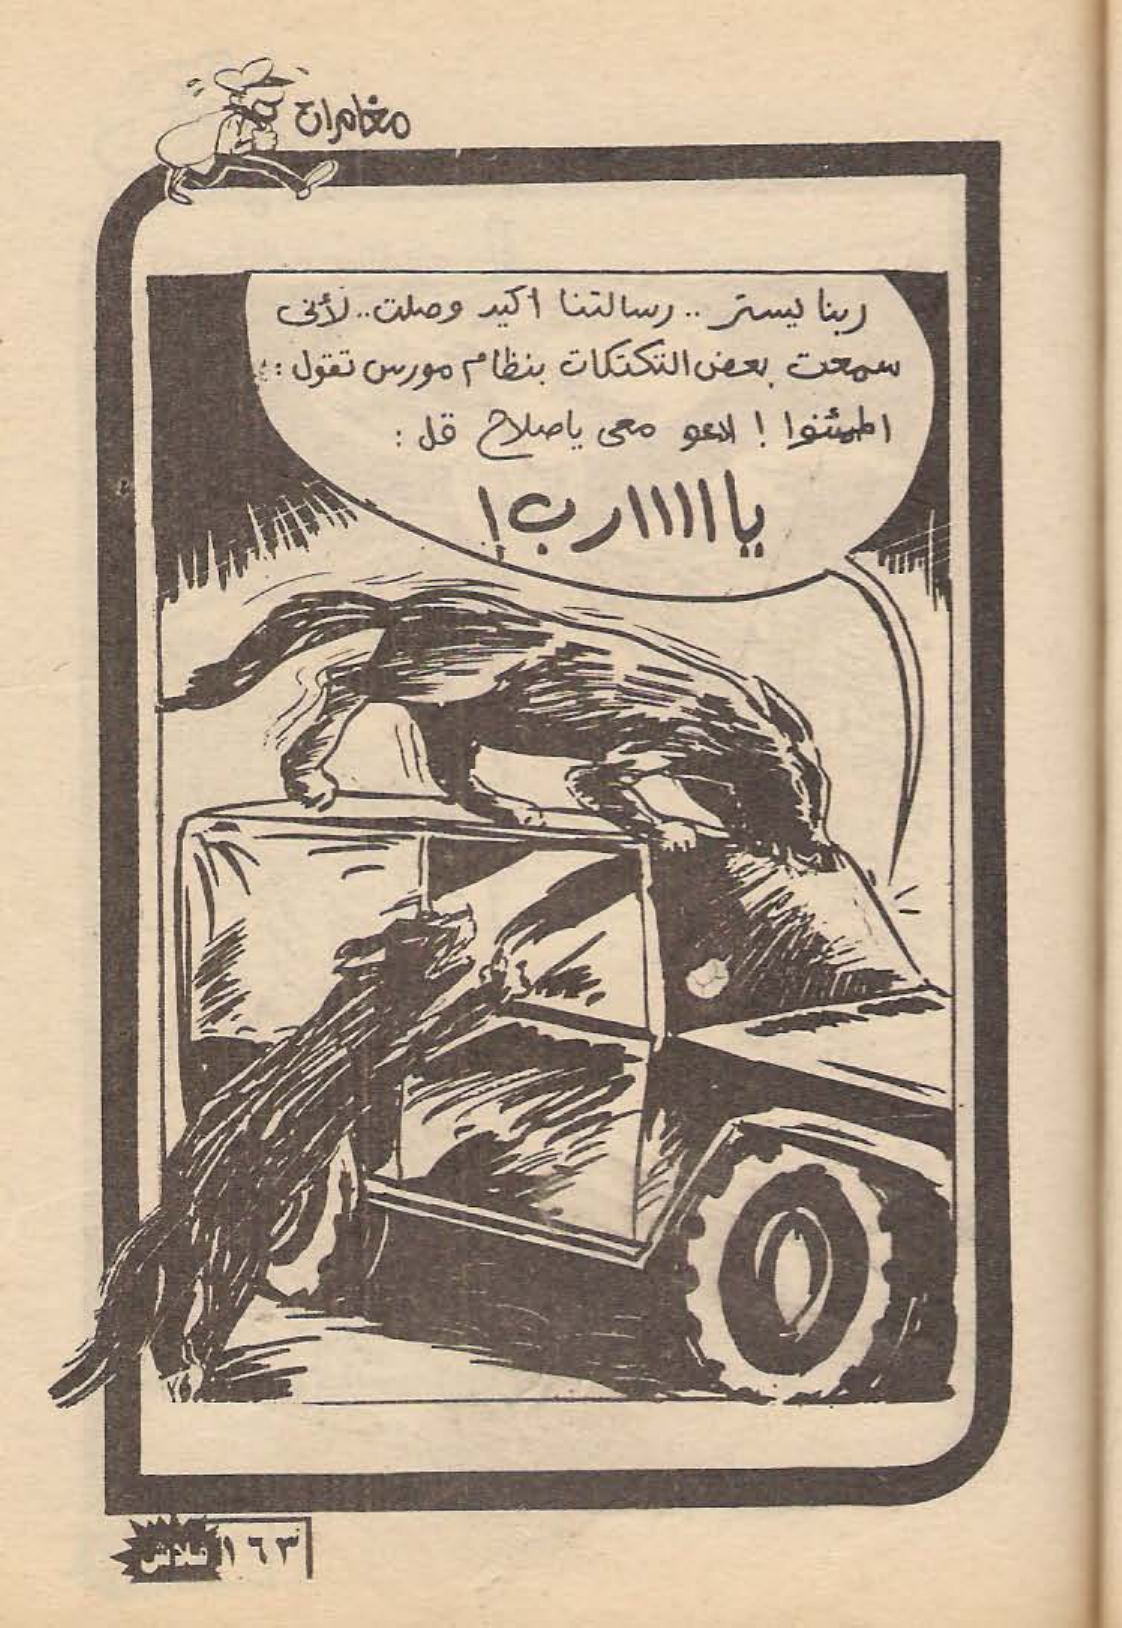 مغامرات
ربنا يستر .. رسالتنا اكيد وصلت.. لأنى
سمعت بعض التكتكات بنظام مورس تقول :
اطمئنوا ! ادعو معى ياصلاح قل :
يااااارب !
١٦٣ فلاش